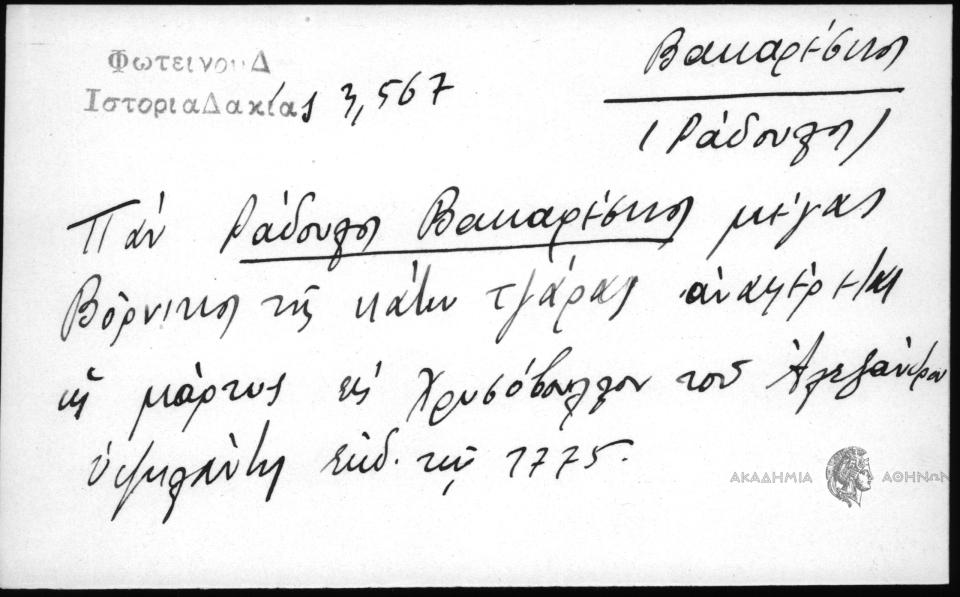 Φωτεινου Δ
Ιστορια Δακίας 3,567
Βακαρέσκος
(Ράδουλος)
Πάν Ράδουλος Βακαρέσκος μέγας
Βόρνικος τῆς κάτω τζάρας ἀναφέρεται
ὡς μάρτυς εἰς χρυσόβουλλον τοῦ Ἀλεξάνδρου
Ὑψηλάντη ἐκδ. τῷ 1775.
ΑΚΑΔΗΜΙΑ ΑΘΗΝΩΝ